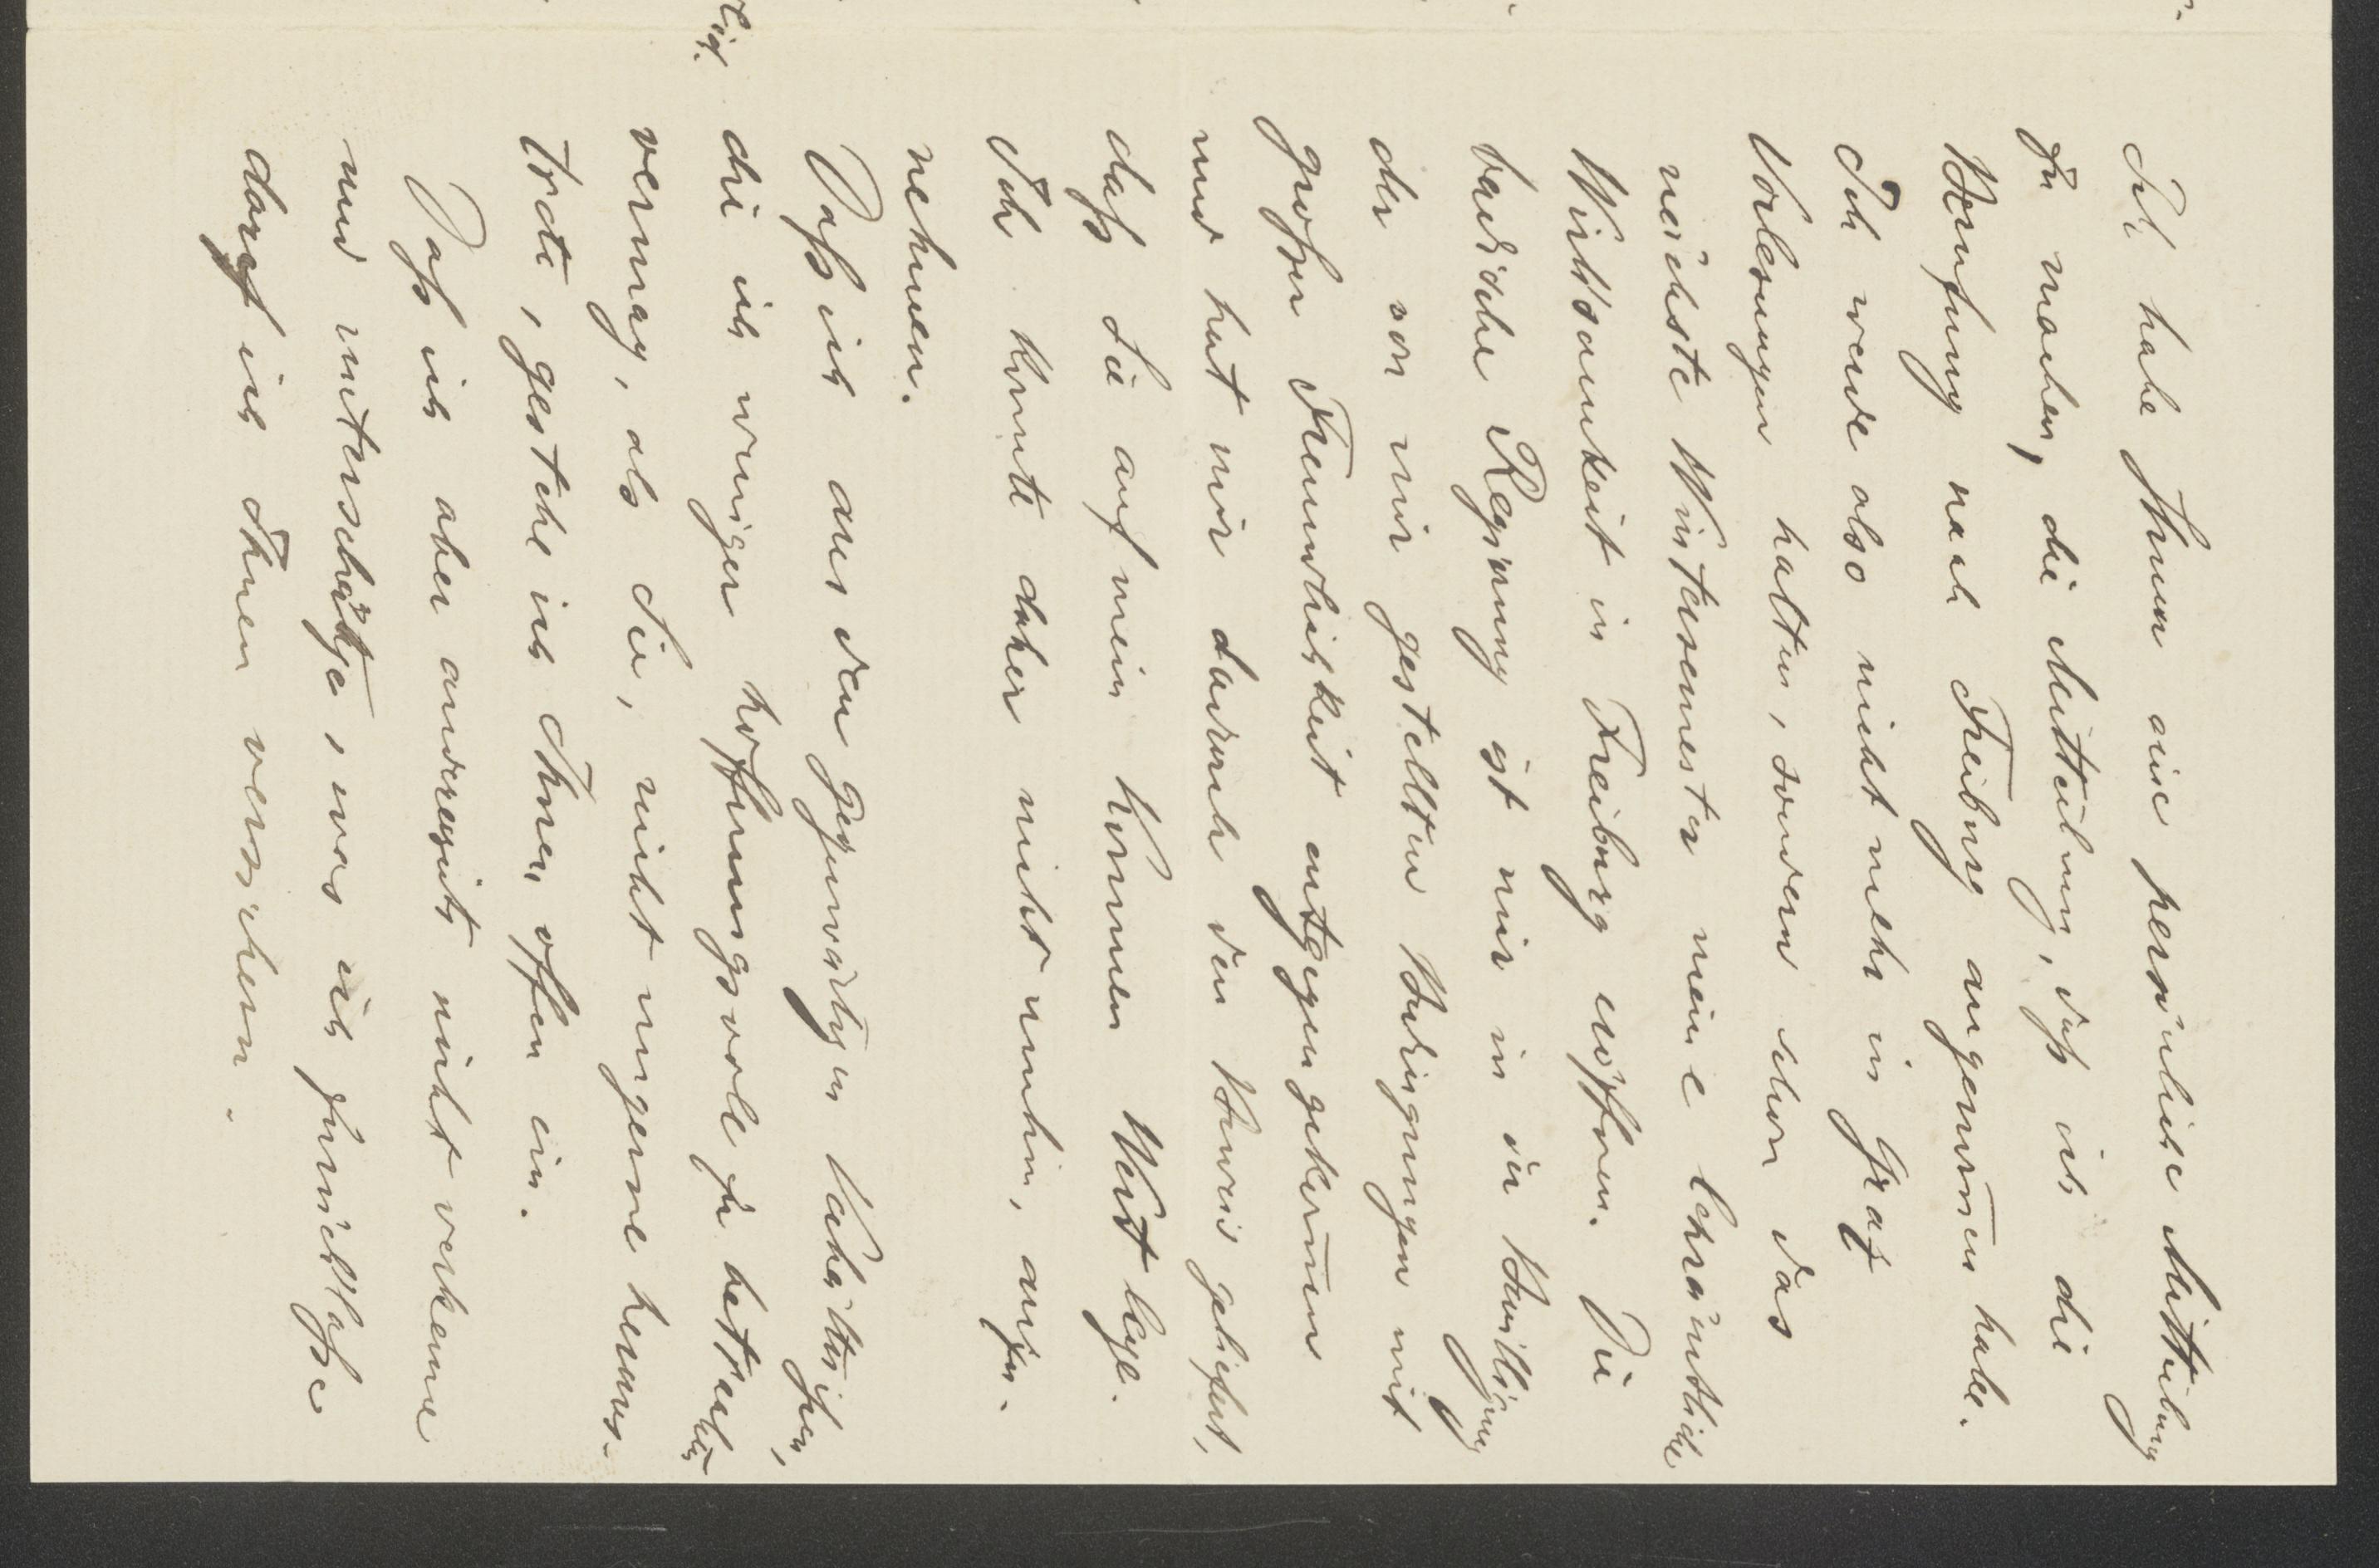 Ich habe Ihnen eine persönliche Mitteilung
zu machen, die Mitteilung, daß ich die
Berufung nach Freiburg angenom̅en habe.
Ich werde also nicht mehr in Graz
Vorlesungen halten, sondern schon das
nächste Wintersemester meine lehramtliche
Wirksamkeit in Freiburg eröffnen. Die
badische Regierung ist mir in der Bewilligung
der von mir gestellten Bedingungen mit
großer Freundlichkeit entgegengekom̅en
und hat mir dadurch den Beweis geliefert,
daß sie auf mein Kommen Wert lege.
Ich konnte daher nicht umhin, anzu-
nehmen.
Daß ich aus den gegenwärtigen Verhältnißen,
die ich weniger hoffnungsvoll zu betrachten
vermag, als Sie, nicht ungerne heraus-
trete, gestehe ich Ihnen offen ein.
Daß ich aber anderseits nicht verkenne
und unterschätze, was ich zurücklaße
darf ich Ihnen versichern.